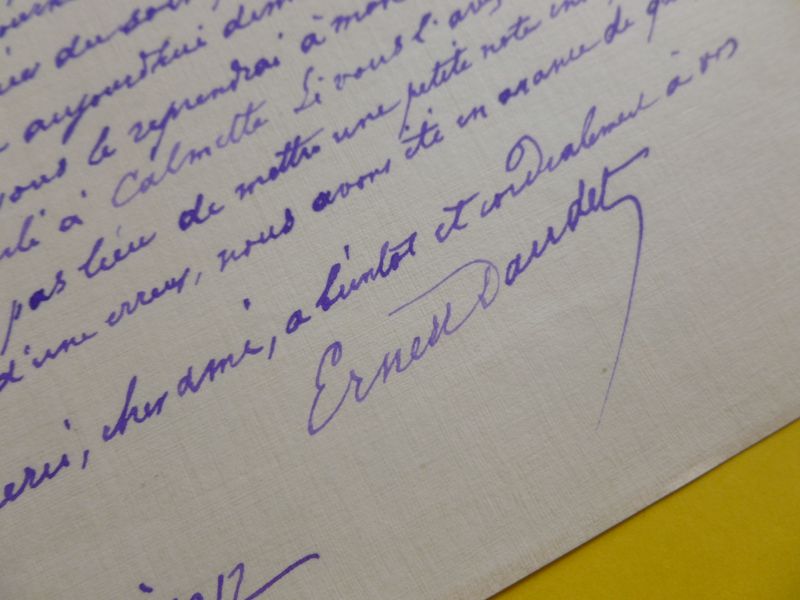 du soir
aujourd'hui
vous le reprendrai à mon
à Calmette. Si vous l'avez
pas lieu de mettre une petite note
d'une erreur, nous avons été en avance de
cher ami, a bientot et cordialement à vos
Ernest Daudet